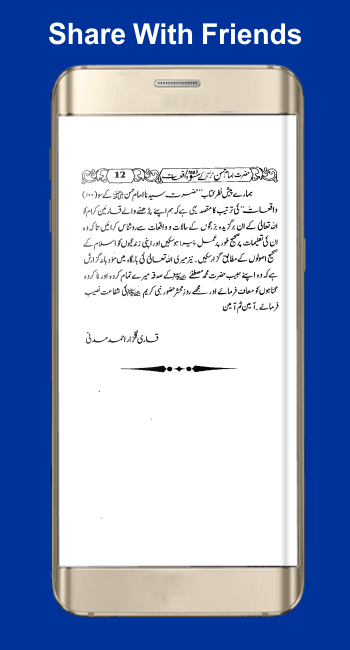 Share With Friends
12 حضرت امام حسن کے سو واقعات
ہمارے پیش نظر کتاب "حضرت سیدنا امام حسن کے سو (۱۰۰)
واقعات" کی ترتیب کا مقصد یہی ہے کہ ہم اپنے پڑھنے والے قارئین کرام کو
اللہ تعالیٰ کے ان برگزیدہ بزرگوں کے حالات و واقعات سے روشناس کرائیں تاکہ وہ
ان کی تعلیمات پر صحیح طور پر عمل پیرا ہو سکیں اور اپنی زندگیوں کو اسلام کے
صحیح اصولوں کے مطابق گزار سکیں۔ نیز میری اللہ تعالیٰ کی بارگاہ میں مؤدبانہ گزارش
ہے کہ وہ اپنے حبیب حضرت محمد مصطفےٰ ﷺ کے صدقہ میرے تمام کردہ اور ناکردہ
گناہوں کو معاف فرمائے اور مجھے روزِ محشر حضور نبی کریم ﷺ کی شفاعت نصیب
فرمائے۔ آمین ثم آمین
قاری گلزار احمد مدنی